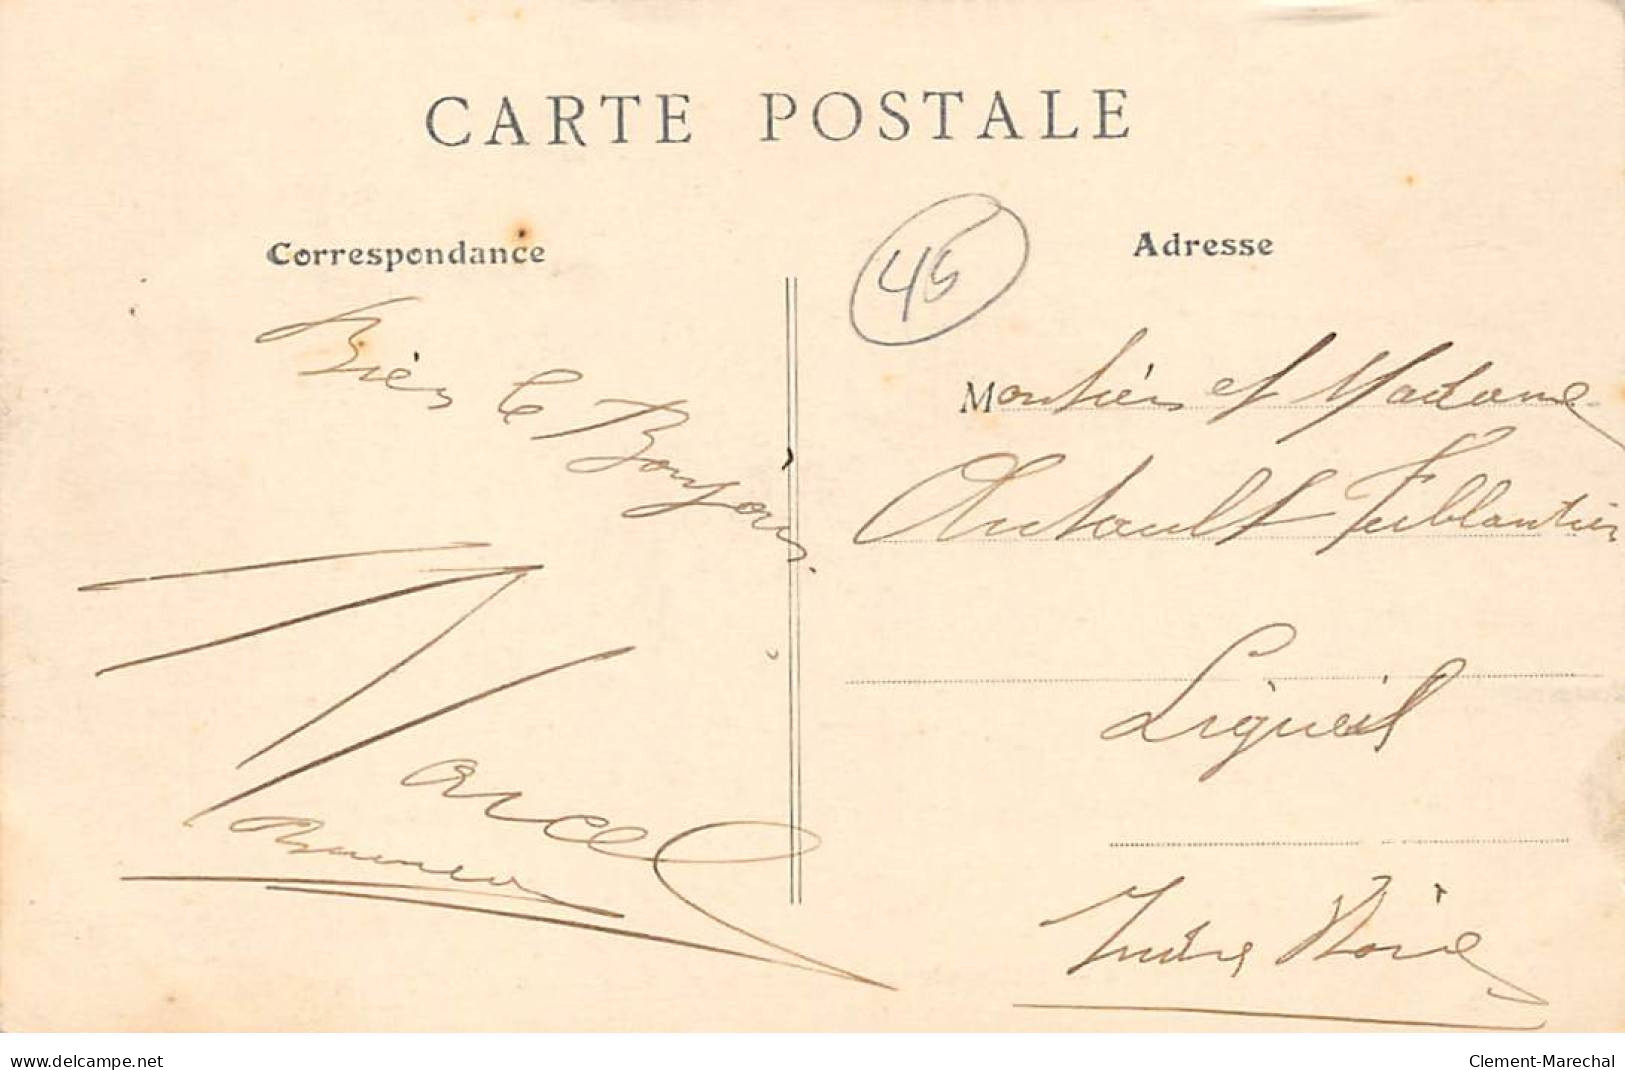 CARTE POSTALE
Correspondance
Bien le Bonjour
Marcel
45
Adresse
Monsieur et Madame
Autault Ferblantier
Ligueil
Indre Loire
www.delcampe.net
Clement-Marechal